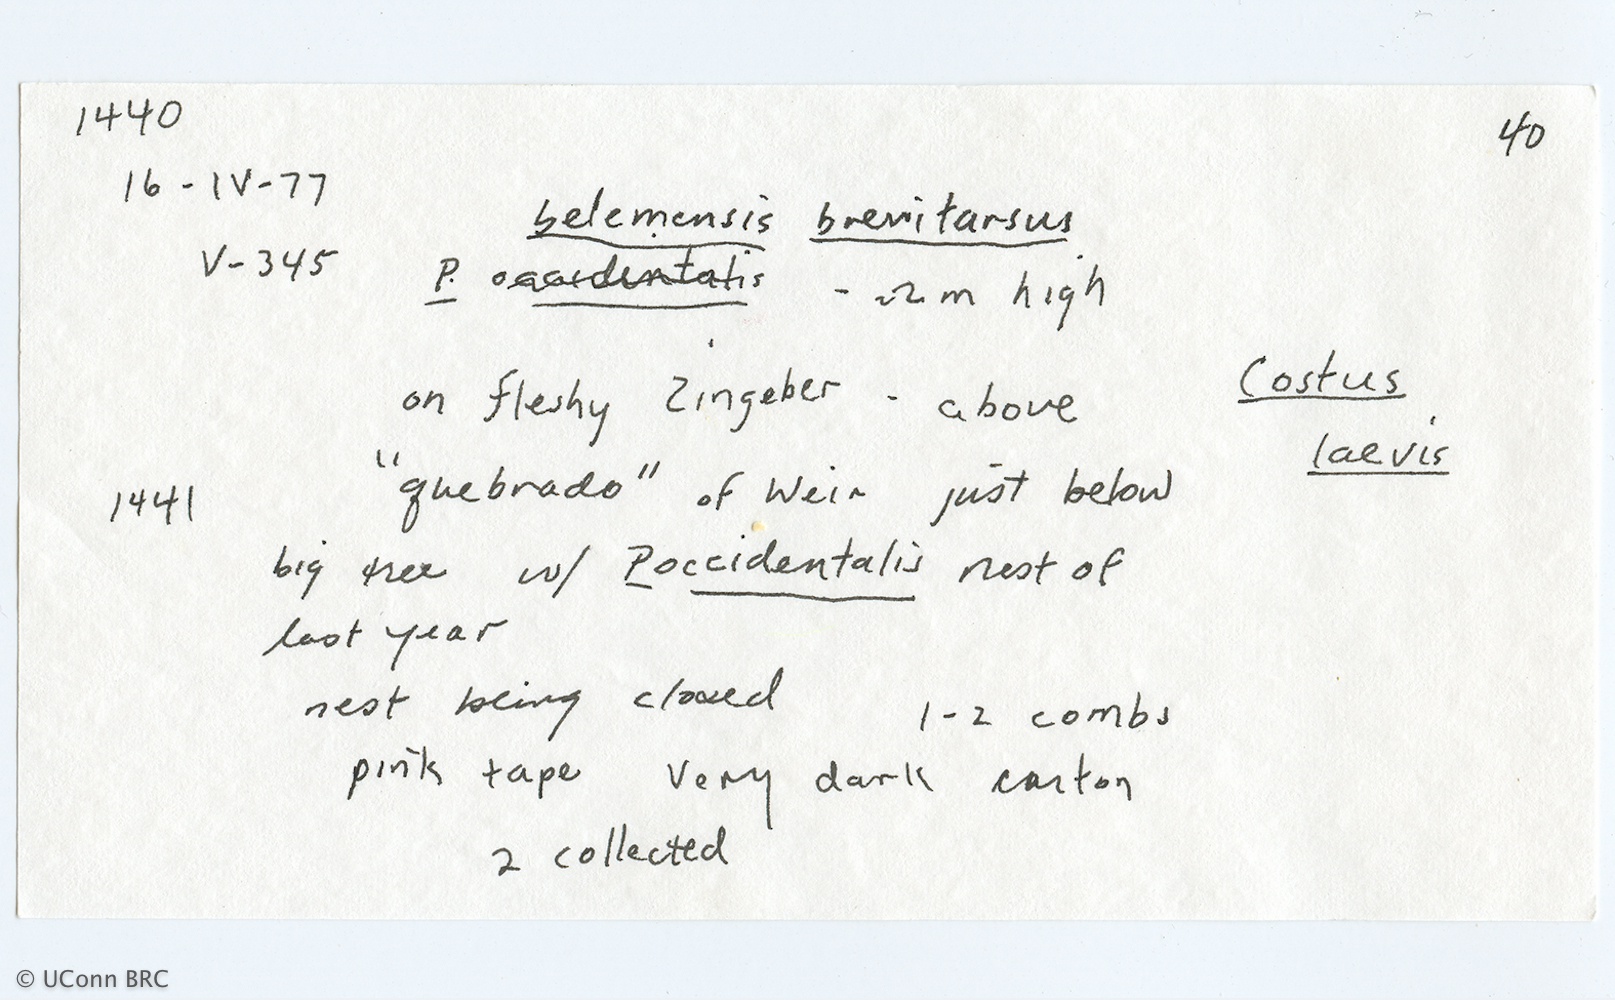 1440
40
16-IV-77
belemensis brevitarsus
V-345
P. occidentalis - ~2m high
on fleshy Zingeber - above
Costus
laevis
"quebrado" of Weir just below
1441
big tree w/ P occidentalis nest of
last year
nest being closed 1-2 combs
pink tape very dark carton
2 collected
© UConn BRC